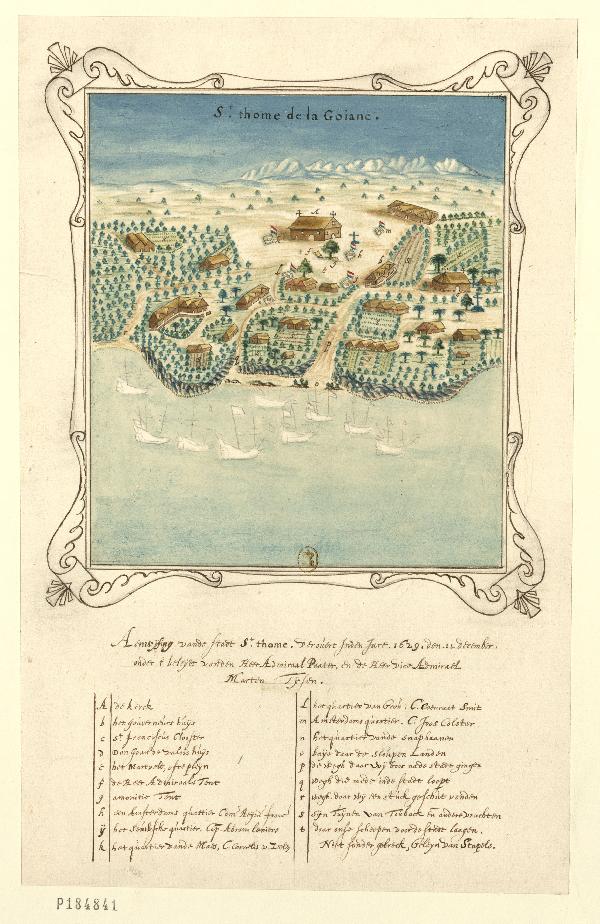 St. thome de la Goiane.
Aenwijsing vande stadt St. thome. verovert Inden Jare. 1629. den 11 december.
onder t beleijt vanden Heer Admiraal Paater, en de Heer vice Admirael
Marten Tijsen.
A de kerck
b het gouverneurs huijs
c St. franciscus Clooster
D Don Goan de valois huijs
e het Marvelt, ofte pleijn
f de Heer Admiraals Tent
g amonitie Tent
h een Amsterdams quartier
ÿ het quartier
k het quartier vande Maes, C. Cornelis
L het quartier van C. Coenraet Smit
m Amsterdams quartier. C. Joos Colster
n het quartier vande snaphaanen
o baije daer de sloupen Landen
p de wegh daer wij voor nade stadt gingen
q wegh die mede inde stadt loopt
r wegh daer wij een stuck geschut vonden
s sijn Tuijnen van Toeback en andere vruchten
t daer onse scheepen voor de stadt laagen.
Niet sonder gebreck, Geleijn van Stapels.
P184841